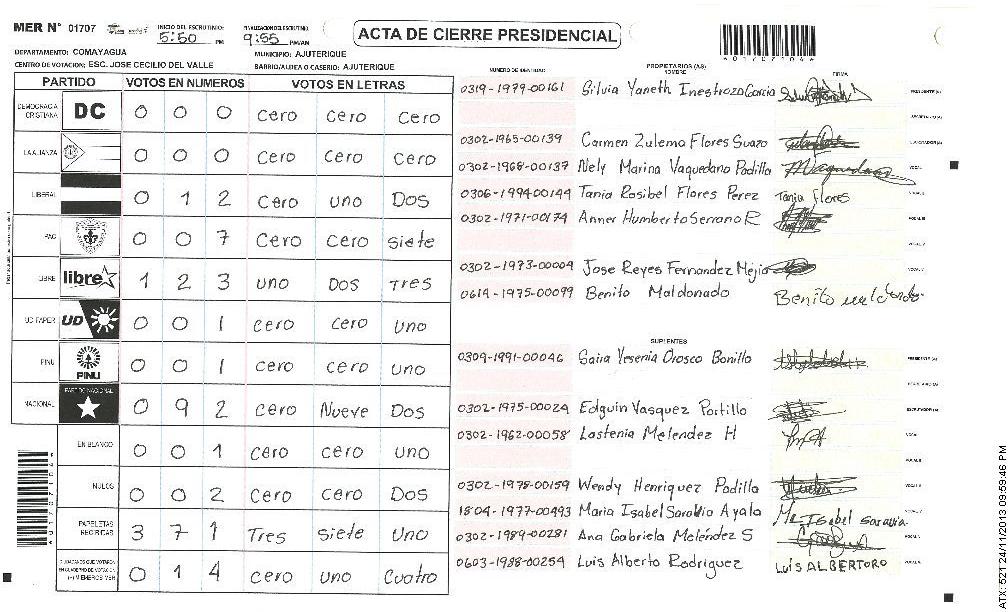 MER N° 01707 INICIO DEL ESCRUTINIO: 5:50 PM FINALIZACION DEL ESCRUTINIO: 9:55 PM/AM ACTA DE CIERRE PRESIDENCIAL
DEPARTAMENTO: COMAYAGUA MUNICIPIO: AJUTERIQUE
CENTRO DE VOTACION: ESC. JOSE CECILIO DEL VALLE BARRIO/ALDEA O CASERIO: AJUTERIQUE
PARTIDO VOTOS EN NUMEROS VOTOS EN LETRAS
DEMOCRACIA CRISTIANA DC 0 0 0 cero cero cero
LA ALIANZA 0 0 0 cero cero cero
LIBERAL 0 1 2 cero uno Dos
PAC 0 0 7 cero cero siete
LIBRE libre 1 2 3 uno Dos Tres
UD FAPER UD 0 0 1 cero cero uno
PINU PINU 0 0 1 cero cero uno
NACIONAL PARTIDO NACIONAL 0 9 2 cero Nueve Dos
EN BLANCO 0 0 1 cero cero uno
NULOS 0 0 2 cero cero Dos
PAPELETAS RECIBIDAS 3 7 1 Tres siete uno
CIUDADANOS QUE VOTARON EN CUADERNO DE VOTACION (+) MIEMBROS MER 0 1 4 cero uno cuatro
NUMERO DE IDENTIDAD PROPIETARIOS (AS) NOMBRE FIRMA
0319-1979-00161 Silvia Yaneth Inestroza Garcia PRESIDENTE (A)
SECRETARIO (A)
0302-1965-00139 Carmen Zulema Flores Suazo ESCRUTADOR (A)
0302-1968-00137 Nely Marina Vaquedano Padilla VOCAL I
0306-1994-00144 Tania Rosibel Flores Perez Tania Flores VOCAL II
0302-1971-00174 Anner Humberto Serrano R VOCAL III
0302-1973-00004 Jose Reyes Fernandez Mejia VOCAL V
0614-1975-00099 Benito Maldonado
SUPLENTES
0309-1991-00046 Saira Yesenia Orosco Bonilla PRESIDENTE (A)
SECRETARIO (A)
0302-1975-00024 Edguin Vasquez Portillo ESCRUTADOR (A)
0302-1962-00058 Lastenia Melendez H VOCAL I
0302-1978-00159 Wendy Henriquez Padilla VOCAL III
1804-1977-00493 Maria Isabel Saravia Ayala Ma Isabel saravia
0302-1989-00281 Ana Gabriela Meléndez S
0603-1988-00254 Luis Alberto Rodriguez LUIS ALBERTO RO
*01707104*
ATX: 521 24/11/2013 09:59:46 PM